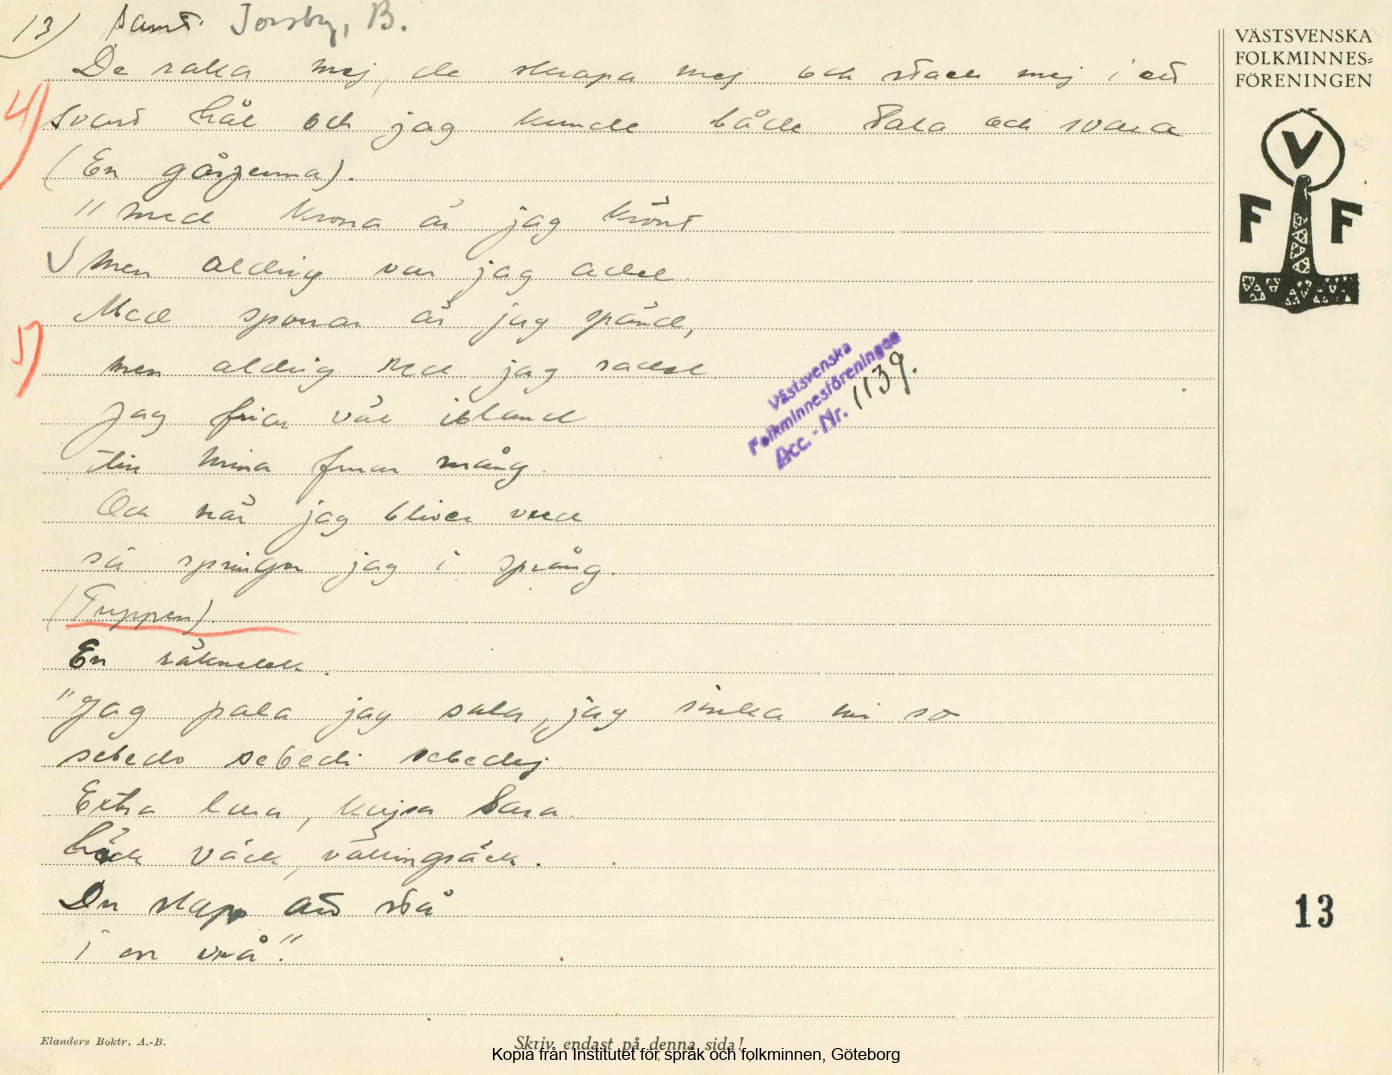 13) Samt. Torsby, B.
VÄSTSVENSKA
FOLKMINNES=
FÖRENINGEN
V
F F
De raka mej, de skrapa mej och stack mej i ett
4)
svart hål och jag kunde både tala och svara
(En gåspenna).
"Med krona är jag krönt
men aldrig var jag adel.
Med sporrar är jag spänd,
5)
men aldrig red jag sadel
Jag friar väl ibland
till mina fruar mång.
Och när jag bliver vred
så springer jag i språng.
(Tuppen).
Västsvenska
Folkminnesföreningen
Acc.-Nr. 1139.
En räknelek.
"Jag pala jag sala, jag sinka mi so
sebedo sebedi sebedej
Extra lara, kajsa Sara.
Häck väck, vällingsäck.
Du slapp att stå
i en vrå."
13
Elanders Boktr. A.-B.
Skriv endast på denna sida!
Kopia från Institutet för språk och folkminnen, Göteborg